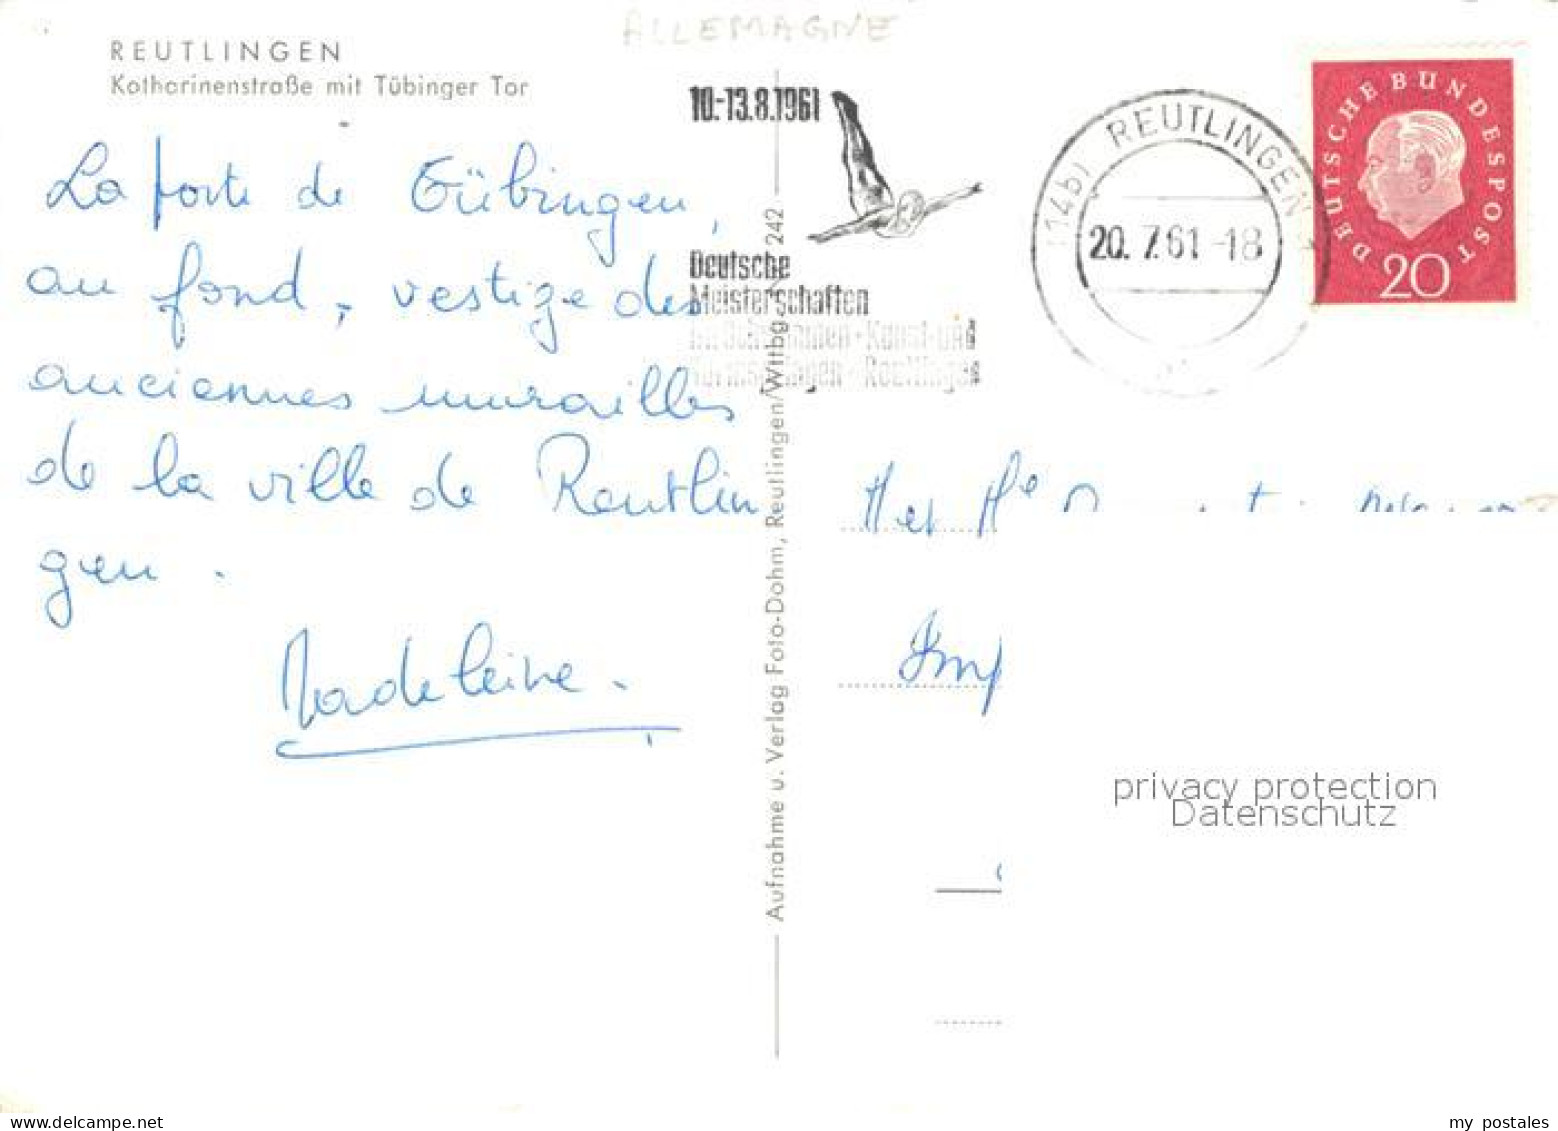 ALLEMAGNE
REUTLINGEN
Katharinenstraße mit Tübinger Tor
La porte de Tübingen,
au fond, vestige des
anciennes murailles
de la ville de Reutlin
gen.
Madeleine.
Aufnahme u. Verlag Foto-Dohm, Reutlingen/Wttbg. 242
10.-13.8.1961
Deutsche
Meisterschaften
im Schwimmen · Kunst- und
Turmspringen · Reutlingen
(14b) REUTLINGEN
20.7.61-18
DEUTSCHE BUNDESPOST
20
Mr et Me
Imp
privacy protection
Datenschutz
my postales